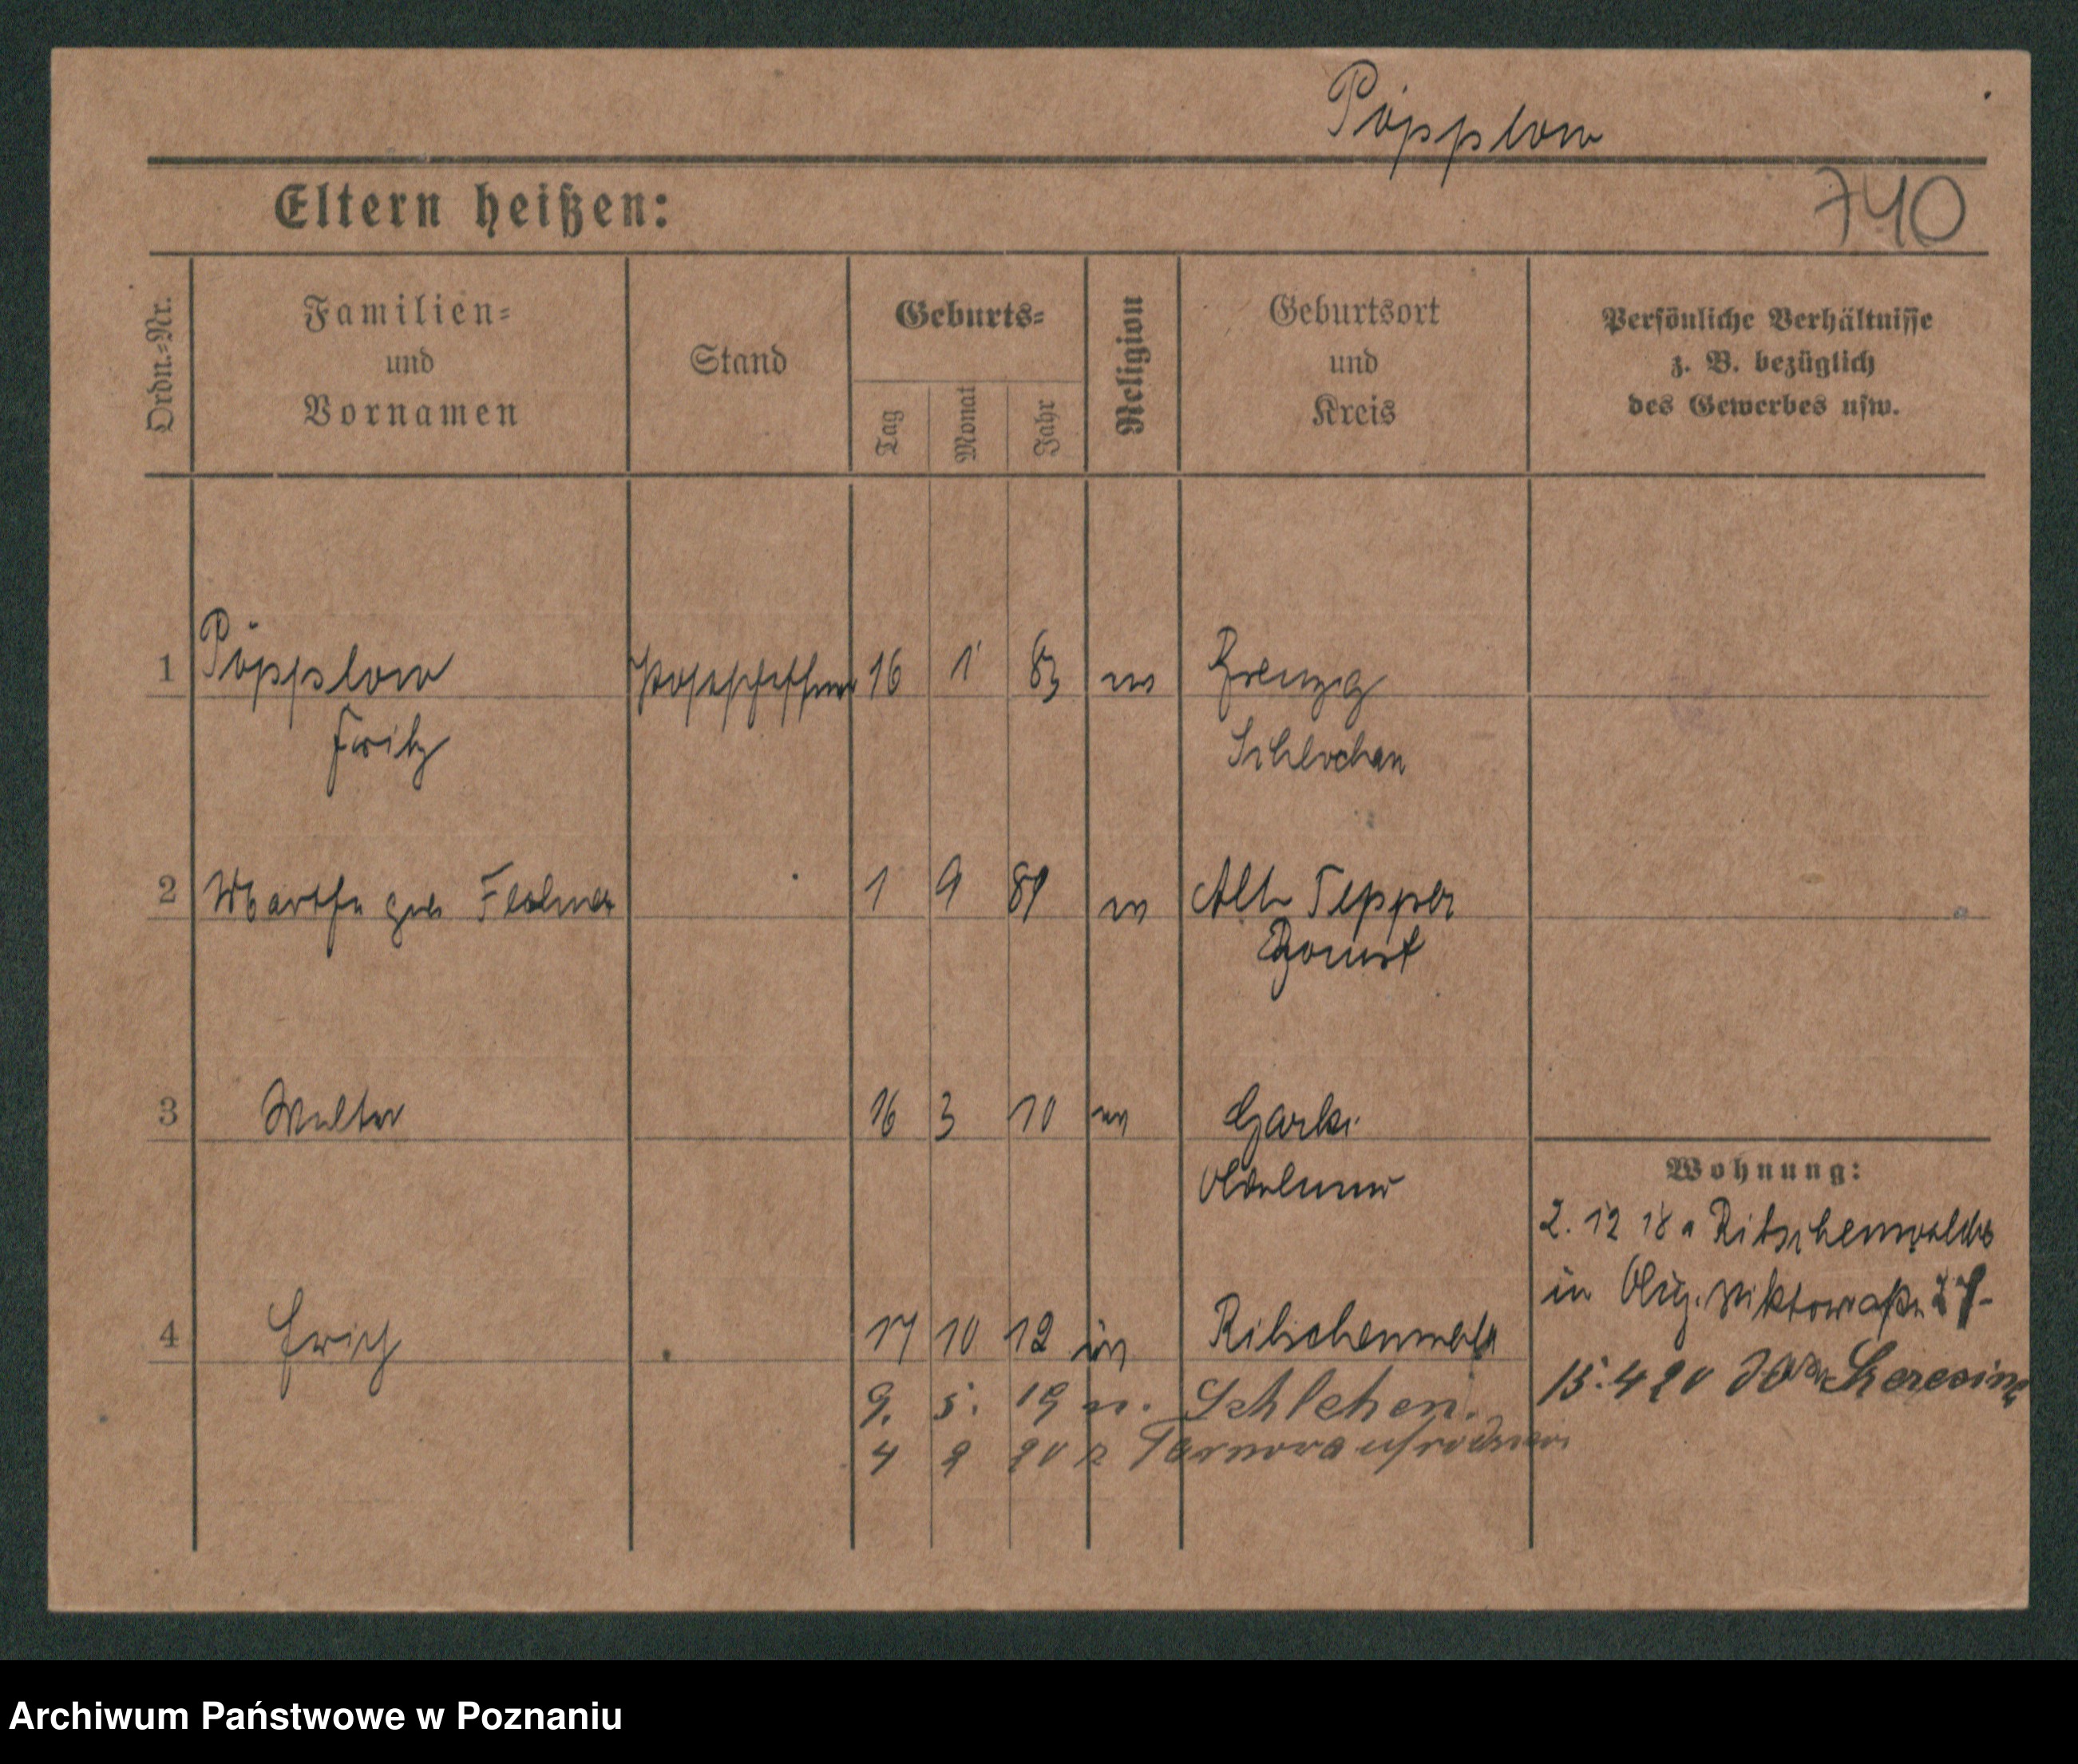 Pöpplow
Eltern heißen:
740
Ordn.=Nr.
Familien=
und
Vornamen
Stand
Geburts=
Tag
Monat
Jahr
Religion
Geburtsort
und
Kreis
Persönliche Verhältnisse
z. B. bezüglich
des Gewerbes usw.
1 Pöpplow 16 1 83 ev
Fritz
Schlochau
2 Martha geb 1 9 89 ev Alt Tepper
Bomst
3 Walter 16 3 10 ev Gorki
Obornik
Wohnung:
2. 12 18 a Ritschenwalde
in 27
4 Erich 17 10 12 ev Ritschenwald
15. 4 20
9. 5. 19 n. Schlehen.
4 2 20 Tarnowo
Archiwum Państwowe w Poznaniu